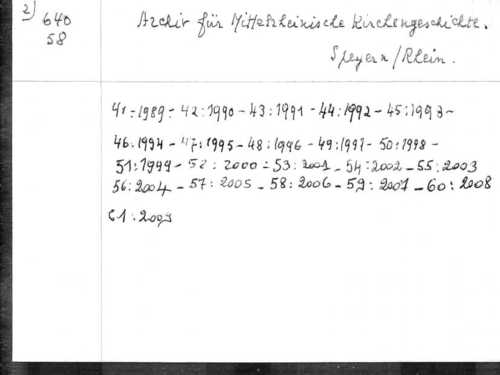 2)
640
58
Archiv für Mittelrheinische Kirchengeschichte.
Speyer/Rhein.
41:1989 - 42:1990 - 43:1991 - 44:1992 - 45:1993 -
46:1994 - 47:1995 - 48:1996 - 49:1997 - 50:1998 -
51:1999 - 52:2000 - 53:2001 - 54:2002 - 55:2003
56:2004 - 57:2005 - 58:2006 - 59:2007 - 60:2008
61:2009